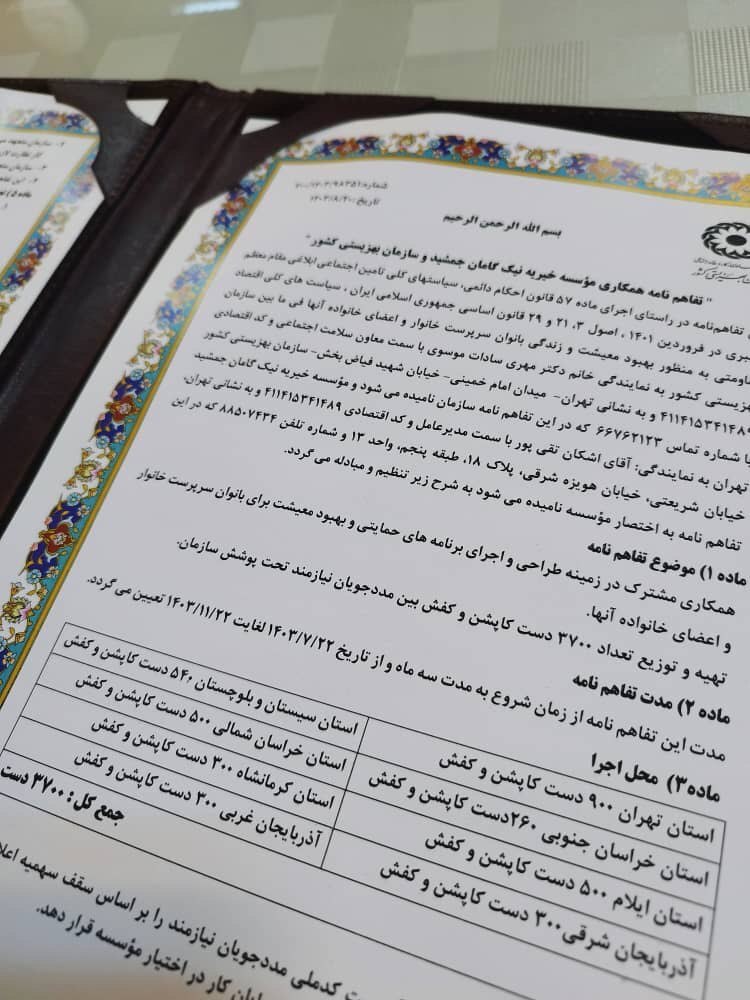 شماره: ۷۰۰/۱۴۰۳/۹۸۳۵۱
تاریخ: ۱۴۰۳/۸/۲۰
بسم الله الرحمن الرحیم
" تفاهم نامه همکاری مؤسسه خیریه نیک گامان جمشید و سازمان بهزیستی کشور "
تفاهم‌نامه در راستای اجرای ماده ۵۷ قانون احکام دائمی، سیاستهای کلی تامین اجتماعی ابلاغی مقام معظم
در فروردین ۱۴۰۱ ، اصول ۳، ۲۱ و ۲۹ قانون اساسی جمهوری اسلامی ایران ، سیاست های کلی اقتصاد
به منظور بهبود معیشت و زندگی بانوان سرپرست خانوار و اعضای خانواده آنها فی ما بین سازمان
بهزیستی کشور به نمایندگی خانم دکتر مهری سادات موسوی با سمت معاون سلامت اجتماعی و کد اقتصادی
۴۱۱۴۱۵۳۴۱۴۸۹ و به نشانی تهران- میدان امام خمینی- خیابان شهید فیاض بخش- سازمان بهزیستی کشور
با شماره تماس ۶۶۷۶۲۱۲۳ که در این تفاهم نامه سازمان نامیده می شود و مؤسسه خیریه نیک گامان جمشید
تهران به نمایندگی: آقای اشکان تقی پور با سمت مدیرعامل و کد اقتصادی ۴۱۱۴۱۵۳۴۱۴۸۹ و به نشانی تهران،
خیابان شریعتی، خیابان هویزه شرقی، پلاک ۱۸، طبقه پنجم، واحد ۱۳ و شماره تلفن ۸۸۵۰۷۴۳۴ که در این
تفاهم نامه به اختصار مؤسسه نامیده می شود به شرح زیر تنظیم و مبادله می گردد.
ماده ۱) موضوع تفاهم نامه
همکاری مشترک در زمینه طراحی و اجرای برنامه های حمایتی و بهبود معیشت برای بانوان سرپرست خانوار
و اعضای خانواده آنها.
تهیه و توزیع تعداد ۳۷۰۰ دست کاپشن و کفش بین مددجویان نیازمند تحت پوشش سازمان.
ماده ۲) مدت تفاهم نامه
مدت این تفاهم نامه از زمان شروع به مدت سه ماه و از تاریخ ۱۴۰۳/۷/۲۲ لغایت ۱۴۰۳/۱۱/۲۲ تعیین می گردد.
ماده ۳) محل اجرا
استان تهران ۹۰۰ دست کاپشن و کفش
استان سیستان و بلوچستان ۵۴۰ دست کاپشن و کفش
استان خراسان جنوبی ۲۶۰دست کاپشن و کفش
استان خراسان شمالی ۵۰۰ دست کاپشن و کفش
استان ایلام ۵۰۰ دست کاپشن و کفش
استان کرمانشاه ۳۰۰ دست کاپشن و کفش
آذربایجان شرقی۳۰۰ دست کاپشن و کفش
آذربایجان غربی ۳۰۰ دست کاپشن و کفش
جمع کل: ۳۷۰۰ دست
کدملی مددجویان نیازمند را بر اساس سقف سهمیه
کار در اختیار مؤسسه قرار دهد.